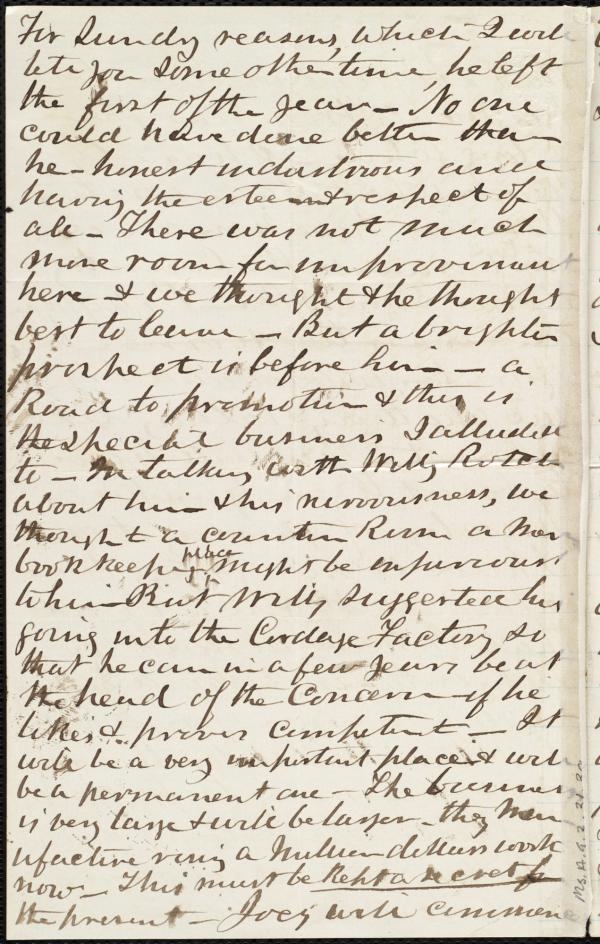 For Sundry reasons, which I will
tell you some other time, he left
the first of the year — No one
could have done better than
he — honest industrious and
having the esteem & respect of
all — There was not much
more room for improvement
here & we thought & he thought
best to leave — But a brighter
prospect is before him — a
Road to promotion & this is
the special business I alluded
to — In talking with Willy Rotch
about him & his nervousness, we
thought a counting Room a mere
book keeping place might be injurious
to him But Willy suggested his
going into the Cordage Factory so
that he can in a few years be at
the head of the Concern if he
likes & proves competent — It
will be a very important place & will
be a permanent one — The business
is very large & will be larger — they man
ufacture a Million dollars worth
now — This must be kept a secret for
the present — Joey will commen
Ms. A. 9. 2.